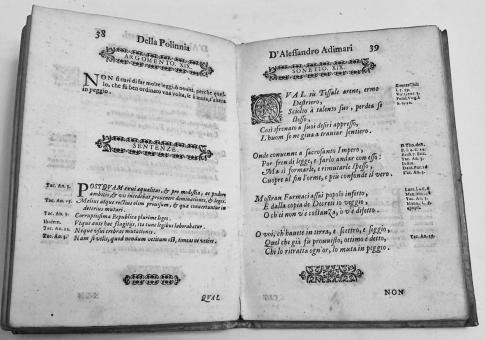 38 Della Polinnia
ARGOMENTO. XIX.
NON si curi di far molte leggi, & nuoui, perche quel-
lo, che fù ben ordinato vna volta, se si muta, s'altera
in peggio.
SENTENZE.
Tac. An. 3. POSTQVAM exui æqualitas, & pro modestia, ac pudore
ambitio & vis incedebat prouenere dominationes, & leges.
Tac. An. 15. Melius atque rectius olim prouisum, & quæ conuertuntur in
deterius mutari.
Tac. An. 3. Corruptissima Republica plurimæ leges.
Ibidem. Vtque ante hac flagitijs, ita tunc legibus laborabatur.
Tac. An. 12. Neque vsui crebras mutationes.
Tac. An. 3. Nam si velis, quod nondum vetitum est, timeas ne vetere.
QVAL
D'Alessandro Adimari 39
SONETTO. XIX.
QVAL tù Tessale arene, ermo
Destriero,
Sciolto à talento suo, perdea se
stesso,
Così sfrenato a' suoi desiri appresso,
L'huom se mgiua a trauiar sentiero.
Onde conuenne a sacrosanto Impero,
Por fren di legge, e farlo andar con esso:
Ma il formarle, e rimutarle spesso,
Cuopre al fin l'orme, e più confonde il vero.
Mostran Farmaci assai popolo infetto,
E dalla copia de Decreti io veggio,
O ch'ei non v'è costanza, o v'è difetto.
O voi, ch'hauete in terra, e scettro, e seggio,
Quel che già fù prouuisto, ottimo è detto,
Chi lo ritratta ogn'or, lo muta in peggio.
Tac. An. 15.
NON